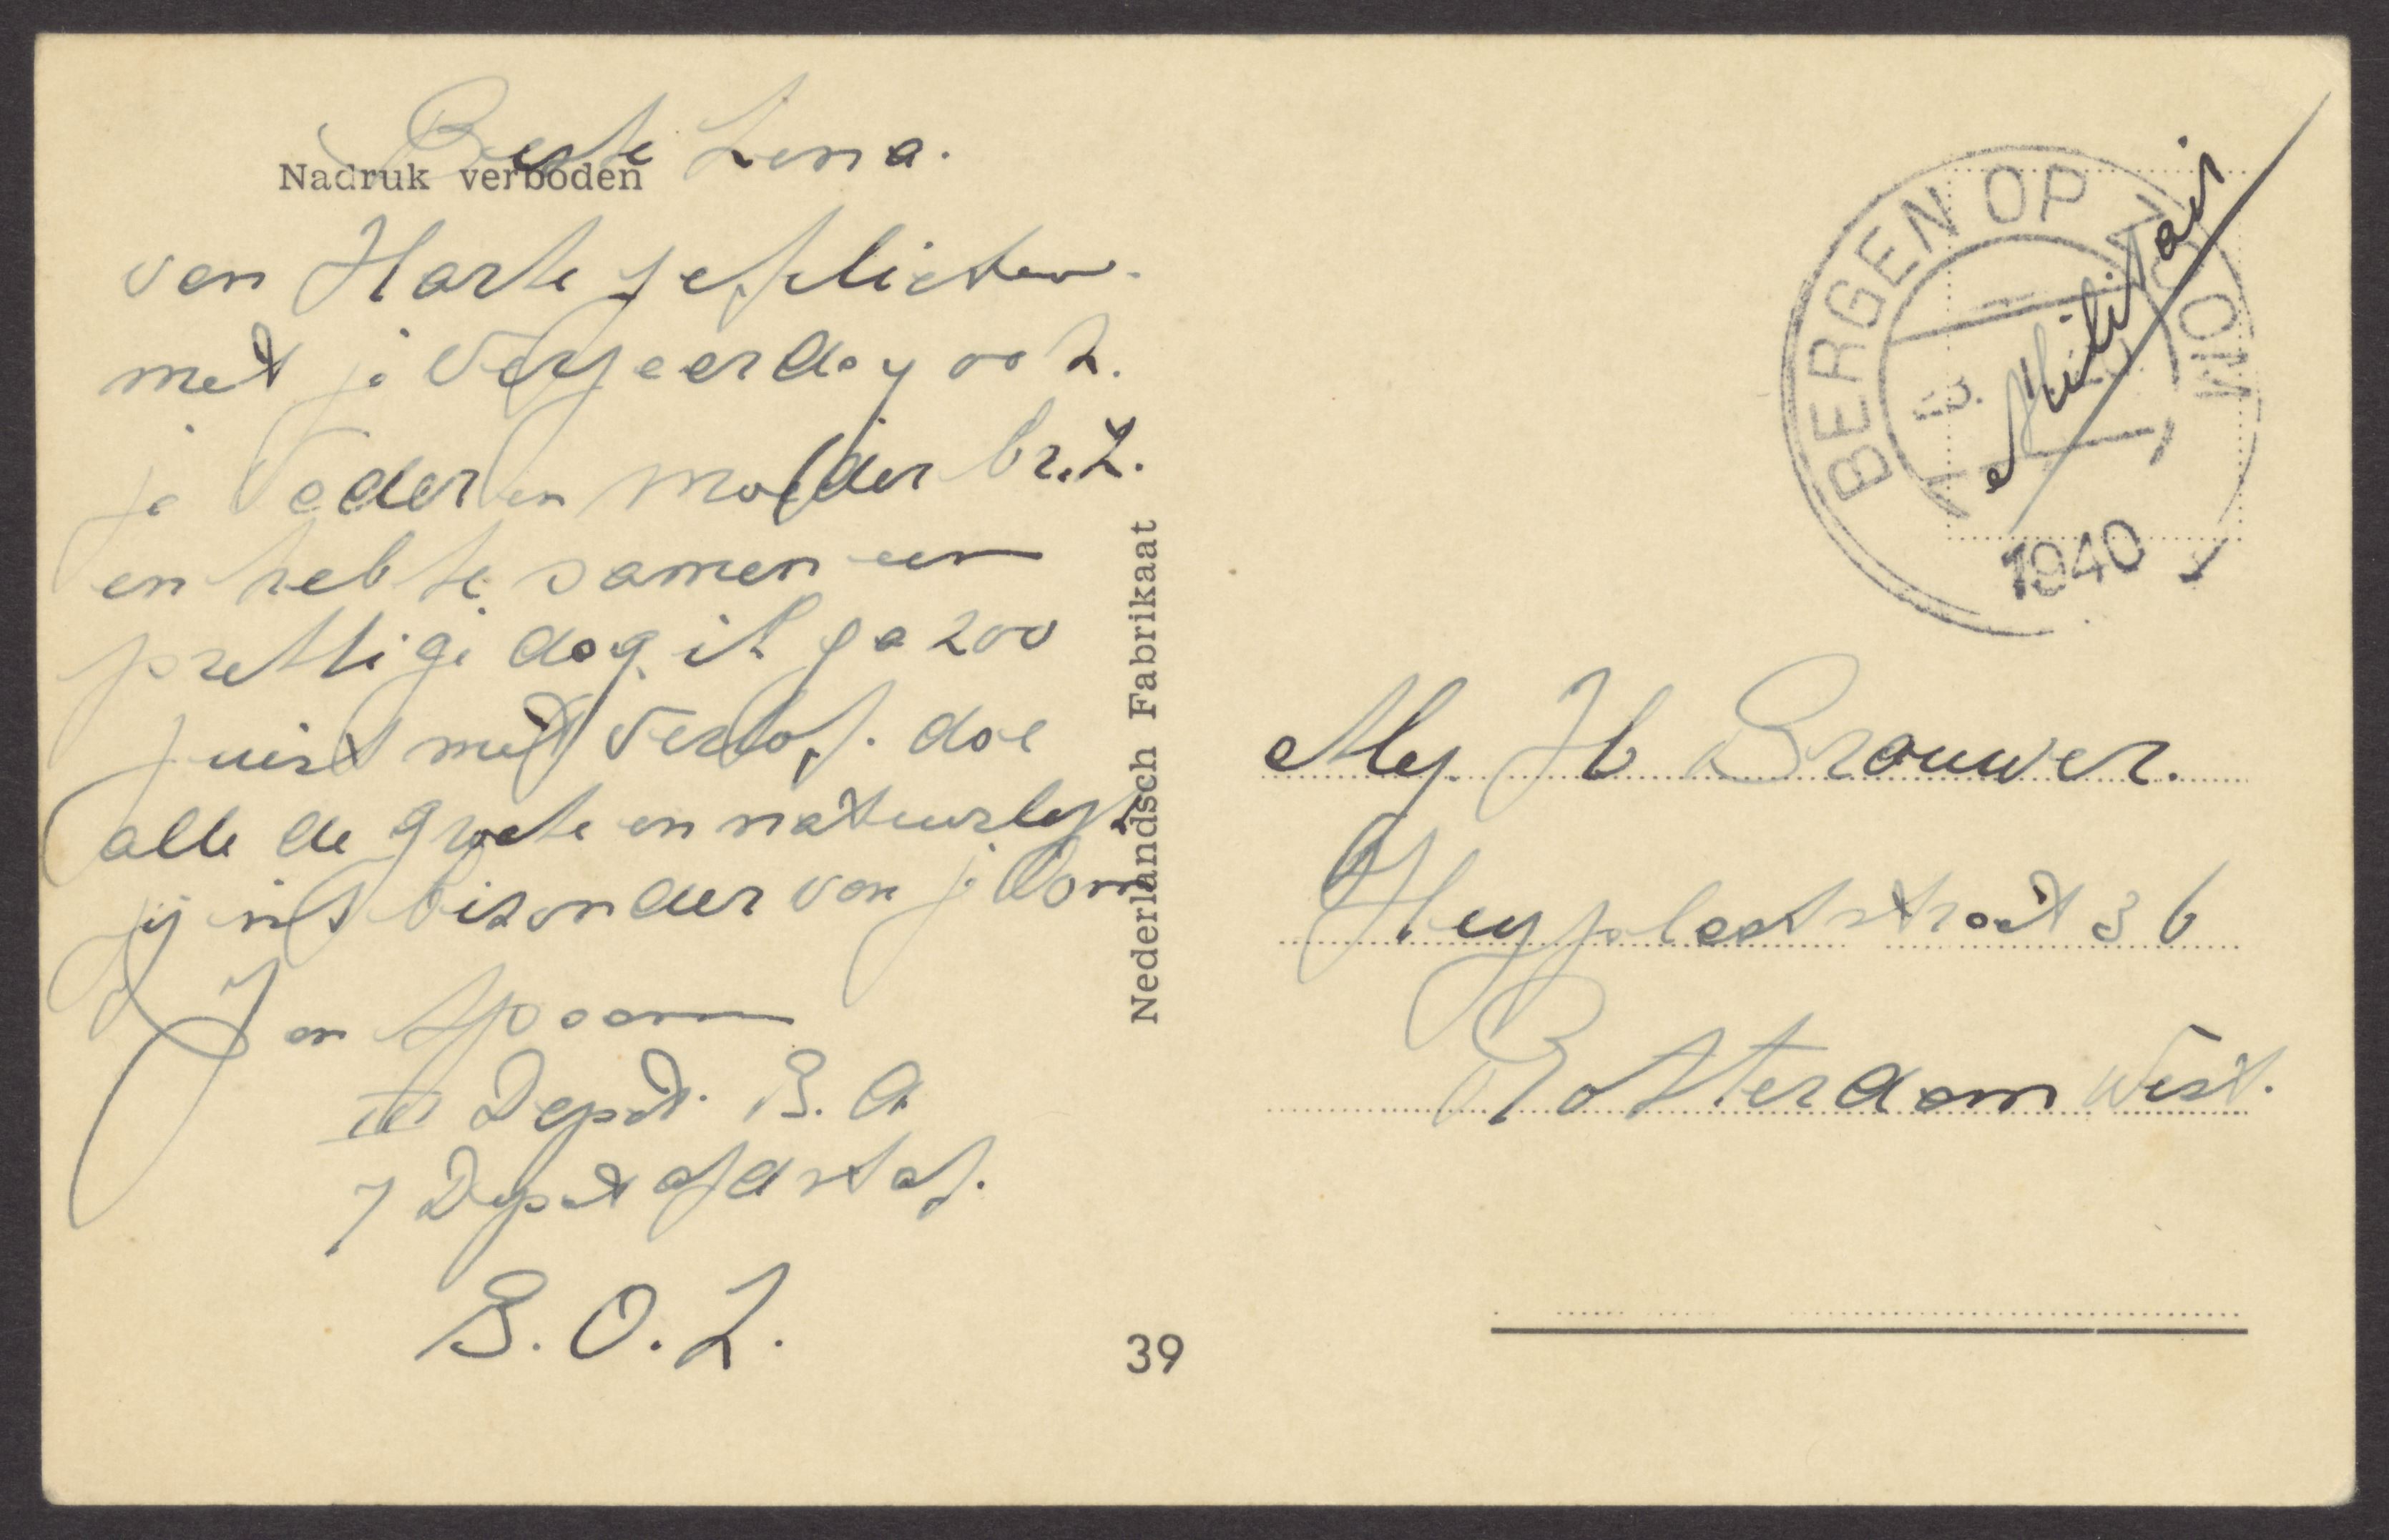 Nadruk verboden
Beste Lena.
van Harte gefelicteer.
met je Verjeerdag ook.
je Vader en Moeder br. Z.
en heb te samen een
prettige dag. ik ga zoo
juist met Verlof. doe
alle de groete en natuurlyk
jij int bizonder van je Oom
Jan Spoorn
III Depot. B. A
7 Depot afd staf.
B. O. Z.
Nederlandsch Fabrikaat
39
BERGEN OP ZOOM
1940
Militair
Mej. H Brouwer.
Heyplaatstraat 36
Rotterdam West.